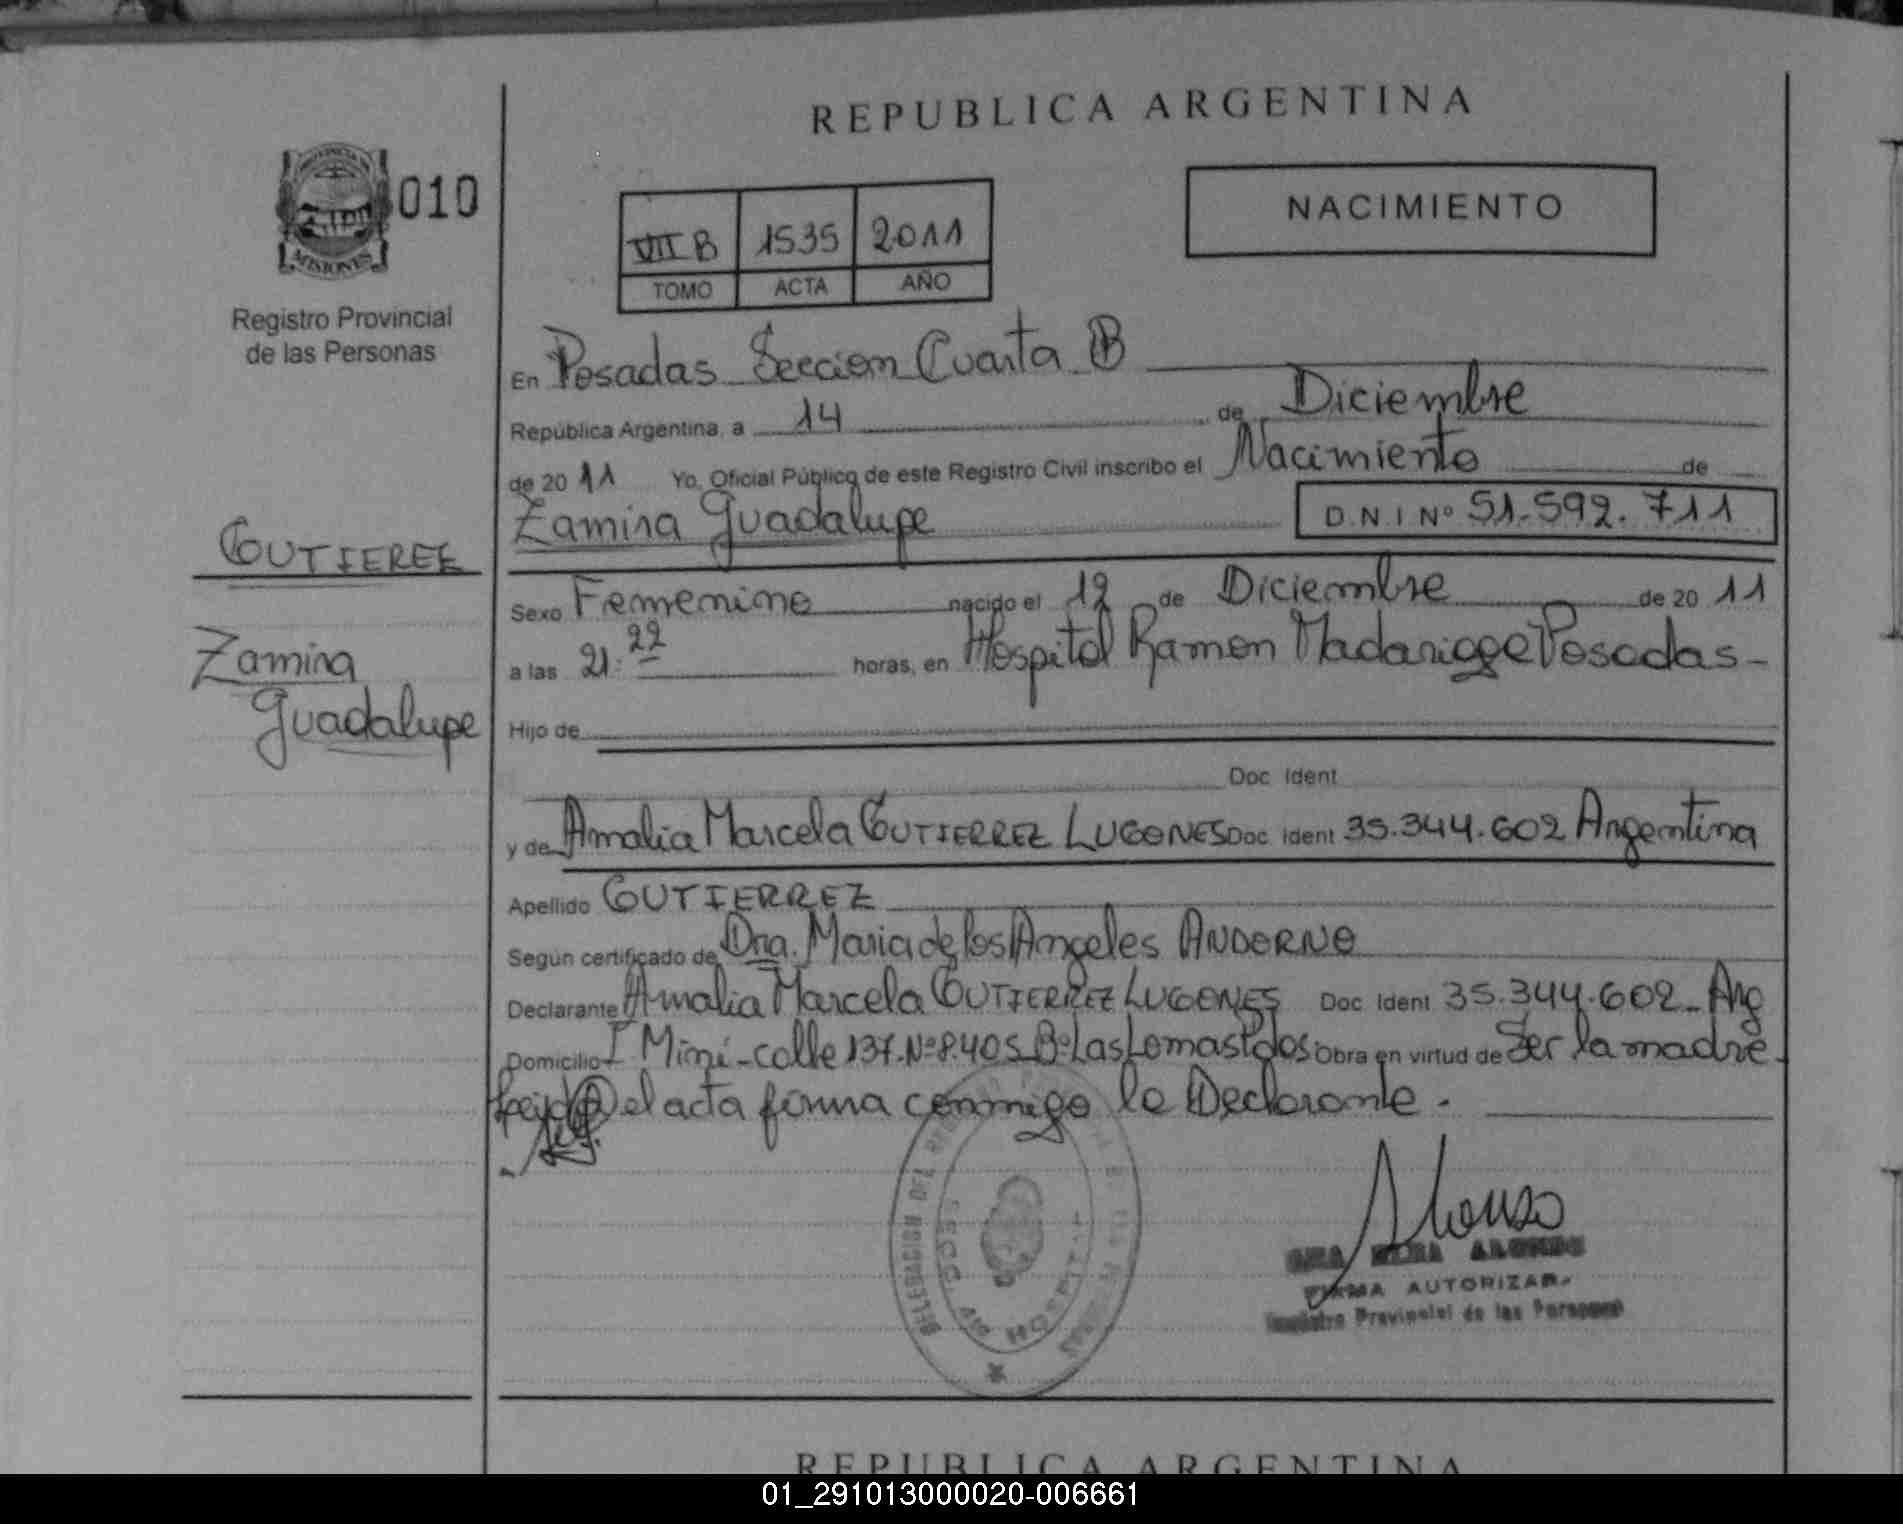 REPUBLICA ARGENTINA
010
MISIONES
Registro Provincial
de las Personas
NACIMIENTO
VII B 1535 2011
TOMO ACTA AÑO
En Posadas Seccion Cuarta B
República Argentina, a 14 de Diciembre
de 20 11 Yo, Oficial Público de este Registro Civil inscribo el Nacimiento de
Zamira Guadalupe D.N.I Nº 51.592.711
GUTIEREZ
Zamira
Guadalupe
Sexo Femenino nacido el 12 de Diciembre de 20 11
a las 21:22 horas, en Hospital Ramon Madariaga Posadas-
Hijo de
Doc Ident
y de Amalia Marcela GUTIERREZ LUGONES Doc Ident 35.344.602 Argentina
Apellido GUTIERREZ
Según certificado de Dra. Maria de los Angeles ANDORNO
Declarante Amalia Marcela GUTIERREZ LUGONES Doc Ident 35.344.602_ Arg
Domicilio I. Miní-calle 137-Nº8.405 Bº Las Lomas Pdos. Obra en virtud de Ser la madre-
Leida el acta firma conmigo la Declarante.
SECC.
HOSPITAL
Alonso
ALONSO
FIRMA AUTORIZADA
Registro Provincial de las Personas
REPUBLICA ARGENTINA
01_291013000020-006661